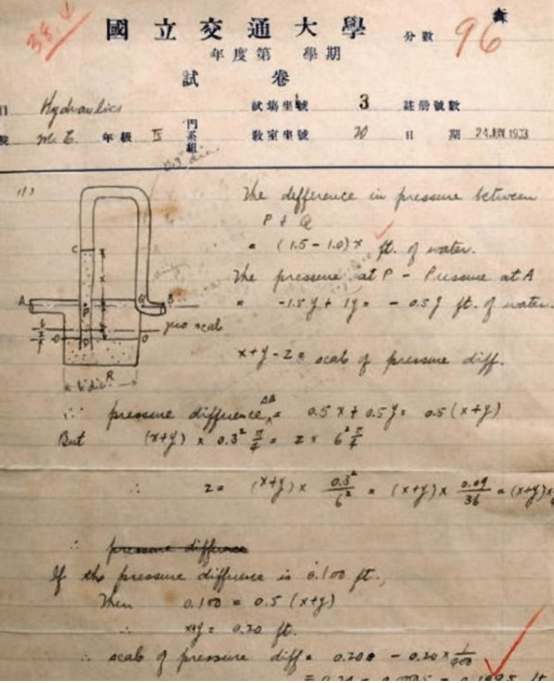 國立交通大學
分數 96
年度第 學期
試卷
目 Hydraulics 試場坐號 3 註册號數
號 M.E. 年級 IV 門組 教室坐號 20 日期 24 JUN 1933
(1)
The difference in pressure between
P & Q
= (1.5 - 1.0) x ft. of water.
The pressure at P - Pressure at A
= -1.5y + 1y = -0.5y ft. of water
x+y-z = scale of pressure diff.
C
A
B
P
Q
zero scale
O
O
R
6" dia.
∴ pressure difference AB = 0.5x + 0.5y = 0.5(x+y)
But (x+y) × 0.3² π/4 = z × 6² π/4
∴ z = (x+y) × 0.3²/6² = (x+y) × 0.09/36 = (x+y)×
∴ pressure difference
If the pressure difference is 0.100 ft.,
Then 0.100 = 0.5 (x+y)
∴ x+y = 0.20 ft.
∴ scale of pressure diff = 0.200 - 0.20 × 1/400
= 0.20 - 0.0005 = 0.1995 ft